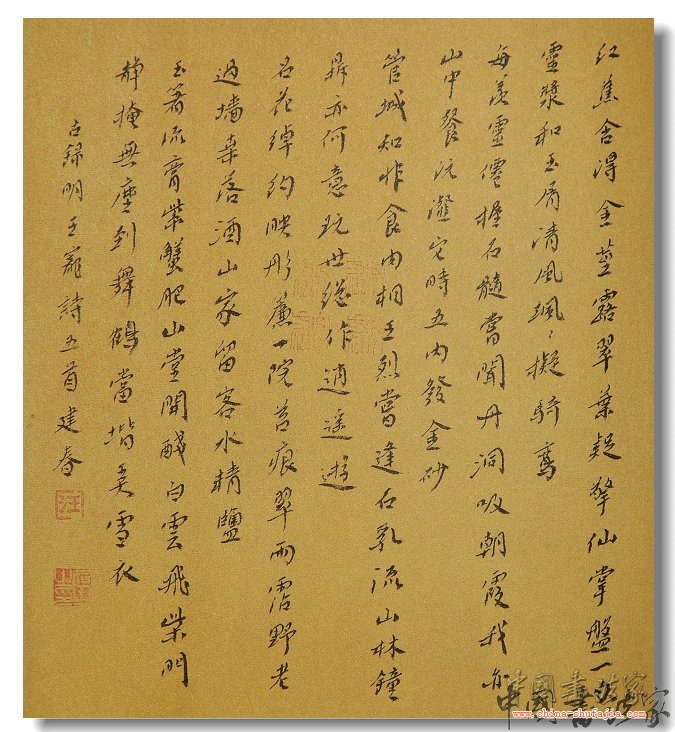 红蕉舍得金莖露翠葉疑擎仙掌盤一
靈漿和玉屑清風颯〻擬騎鸞
每羡靈僊握石髓嘗聞丹洞吸朝霞我亦
山中餐沆瀣它時五内發金砂
管城知非食肉相王烈嘗逢石乳流山林鐘
鼎亦何意玩世總作逍遥遊
名花綽約映彤簾一院苔痕翠雨霑野老
過墻棗落酒山家留客水精鹽
玉箸流膏紫蟹肥山堂開醆白雲飛柴門
静掩無塵到舞鶴當堦美雪衣
右録明王寵詩五首建春
汪
中國書法家
www.china-shufajia.com